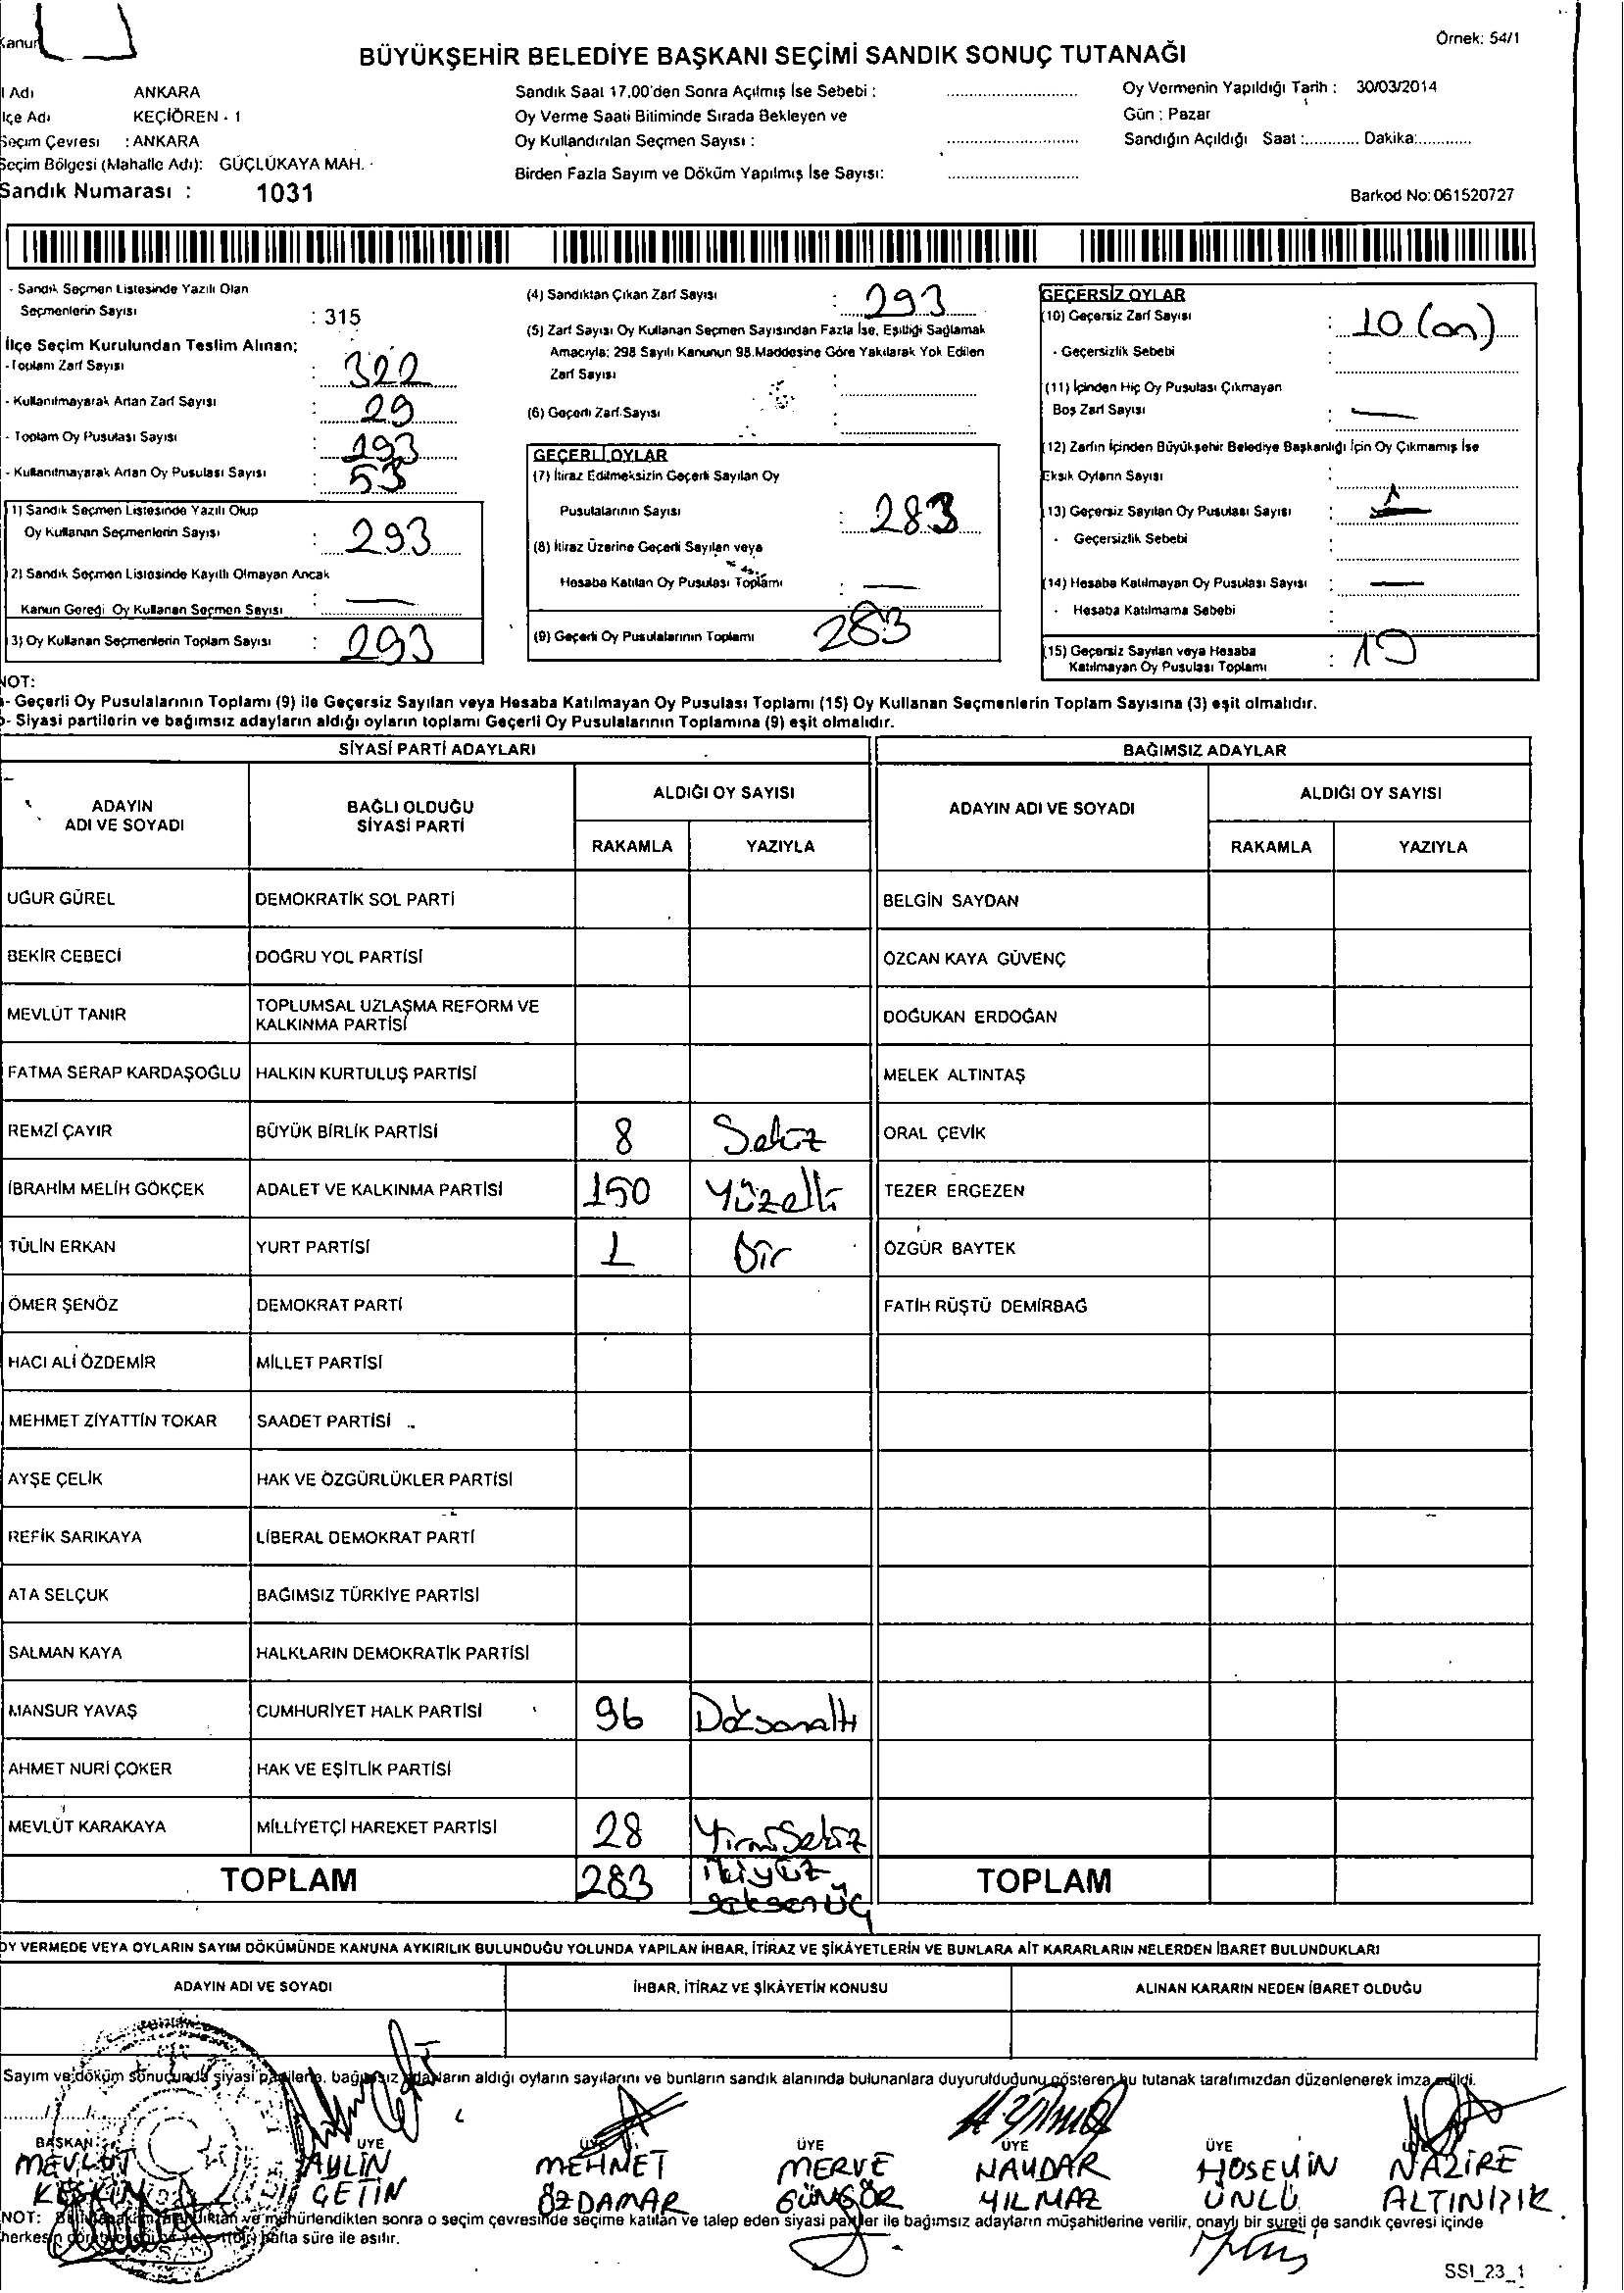 Kanun
Örnek: 54/1
BÜYÜKŞEHİR BELEDİYE BAŞKANI SEÇİMİ SANDIK SONUÇ TUTANAĞI
l Adı ANKARA
lçe Adı KEÇİÖREN - 1
Seçim Çevresi : ANKARA
Seçim Bölgesi (Mahalle Adı): GÜÇLÜKAYA MAH. -
Sandık Numarası : 1031
Sandık Saat 17.00'den Sonra Açılmış İse Sebebi :
Oy Verme Saati Bitiminde Sırada Bekleyen ve
Oy Kullandırılan Seçmen Sayısı :
Birden Fazla Sayım ve Döküm Yapılmış İse Sayısı:
Oy Vermenin Yapıldığı Tarih : 30/03/2014
Gün : Pazar
Sandığın Açıldığı Saat :............ Dakika:.............
Barkod No: 061520727
- Sandık Seçmen Listesinde Yazılı Olan
Seçmenlerin Sayısı : 315
İlçe Seçim Kurulundan Teslim Alınan;
- Toplam Zarf Sayısı : 322
- Kullanılmayarak Artan Zarf Sayısı : 29
- Toplam Oy Pusulası Sayısı : 293
- Kullanılmayarak Artan Oy Pusulası Sayısı : 53
1) Sandık Seçmen Listesinde Yazılı Olup
Oy Kullanan Seçmenlerin Sayısı : 293
2) Sandık Seçmen Listesinde Kayıtlı Olmayan Ancak
Kanun Gereği Oy Kullanan Seçmen Sayısı : —
3) Oy Kullanan Seçmenlerin Toplam Sayısı : 293
(4) Sandıktan Çıkan Zarf Sayısı : 293
(5) Zarf Sayısı Oy Kullanan Seçmen Sayısından Fazla İse, Eşitliği Sağlamak
Amacıyla; 298 Sayılı Kanunun 98.Maddesine Göre Yakılarak Yok Edilen
Zarf Sayısı :
(6) Geçerli Zarf Sayısı :
GEÇERLİ OYLAR
(7) İtiraz Edilmeksizin Geçerli Sayılan Oy
Pusulalarının Sayısı : 283
(8) İtiraz Üzerine Geçerli Sayılan veya
Hesaba Katılan Oy Pusulası Toplamı : —
(9) Geçerli Oy Pusulalarının Toplamı 283
GEÇERSİZ OYLAR
(10) Geçersiz Zarf Sayısı : 10 (on)
- Geçersizlik Sebebi :
(11) İçinden Hiç Oy Pusulası Çıkmayan
Boş Zarf Sayısı : —
(12) Zarfın İçinden Büyükşehir Belediye Başkanlığı İçin Oy Çıkmamış İse
Eksik Oyların Sayısı :
13) Geçersiz Sayılan Oy Pusulası Sayısı :
- Geçersizlik Sebebi :
(14) Hesaba Katılmayan Oy Pusulası Sayısı : —
- Hesaba Katılmama Sebebi :
(15) Geçersiz Sayılan veya Hesaba
Katılmayan Oy Pusulası Toplamı : 10
NOT:
- Geçerli Oy Pusulalarının Toplamı (9) ile Geçersiz Sayılan veya Hesaba Katılmayan Oy Pusulası Toplamı (15) Oy Kullanan Seçmenlerin Toplam Sayısına (3) eşit olmalıdır.
- Siyasi partilerin ve bağımsız adayların aldığı oyların toplamı Geçerli Oy Pusulalarının Toplamına (9) eşit olmalıdır.
SİYASİ PARTİ ADAYLARI BAĞIMSIZ ADAYLAR
ADAYIN ADI VE SOYADI BAĞLI OLDUĞU SİYASİ PARTİ ALDIĞI OY SAYISI ADAYIN ADI VE SOYADI ALDIĞI OY SAYISI
RAKAMLA YAZIYLA RAKAMLA YAZIYLA
UĞUR GÜREL DEMOKRATİK SOL PARTİ BELGİN SAYDAN
BEKİR CEBECİ DOĞRU YOL PARTİSİ ÖZCAN KAYA GÜVENÇ
MEVLÜT TANIR TOPLUMSAL UZLAŞMA REFORM VE KALKINMA PARTİSİ DOĞUKAN ERDOĞAN
FATMA SERAP KARDAŞOĞLU HALKIN KURTULUŞ PARTİSİ MELEK ALTINTAŞ
REMZİ ÇAYIR BÜYÜK BİRLİK PARTİSİ 8 Sekiz ORAL ÇEVİK
İBRAHİM MELİH GÖKÇEK ADALET VE KALKINMA PARTİSİ 150 Yüzelli TEZER ERGEZEN
TÜLİN ERKAN YURT PARTİSİ 1 Bir ÖZGÜR BAYTEK
ÖMER ŞENÖZ DEMOKRAT PARTİ FATİH RÜŞTÜ DEMİRBAĞ
HACI ALİ ÖZDEMİR MİLLET PARTİSİ
MEHMET ZİYATTİN TOKAR SAADET PARTİSİ
AYŞE ÇELİK HAK VE ÖZGÜRLÜKLER PARTİSİ
REFİK SARIKAYA LİBERAL DEMOKRAT PARTİ
ATA SELÇUK BAĞIMSIZ TÜRKİYE PARTİSİ
SALMAN KAYA HALKLARIN DEMOKRATİK PARTİSİ
MANSUR YAVAŞ CUMHURİYET HALK PARTİSİ 96 Doksanaltı
AHMET NURİ ÇOKER HAK VE EŞİTLİK PARTİSİ
MEVLÜT KARAKAYA MİLLİYETÇİ HAREKET PARTİSİ 28 YirmiSekiz
TOPLAM 283 ikiyüz seksenüç TOPLAM
OY VERMEDE VEYA OYLARIN SAYIM DÖKÜMÜNDE KANUNA AYKIRILIK BULUNDUĞU YOLUNDA YAPILAN İHBAR, İTİRAZ VE ŞİKÂYETLERİN VE BUNLARA AİT KARARLARIN NELERDEN İBARET BULUNDUKLARI
ADAYIN ADI VE SOYADI İHBAR, İTİRAZ VE ŞİKÂYETİN KONUSU ALINAN KARARIN NEDEN İBARET OLDUĞU
Sayım ve döküm sonucunda siyasi partilerin, bağımsız adayların aldığı oyların sayılarını ve bunların sandık alanında bulunanlara duyurulduğunu gösteren bu tutanak tarafımızdan düzenlenerek imza edildi.
BAŞKAN ÜYE ÜYE ÜYE ÜYE ÜYE ÜYE
MEVLUT AYLİN MEHMET MERVE HAYDAR HÜSEYİN NAZİRE
KESKİN ÇETİN ÖZDAMAR GÜNGÖR YILMAZ ÜNLÜ ALTINIŞIK
NOT: ve mühürlendikten sonra o seçim çevresinde seçime katılan ve talep eden siyasi partiler ile bağımsız adayların müşahitlerine verilir, onaylı bir sureti de sandık çevresi içinde
herkesin hafta süre ile asılır.
SSI_23_1